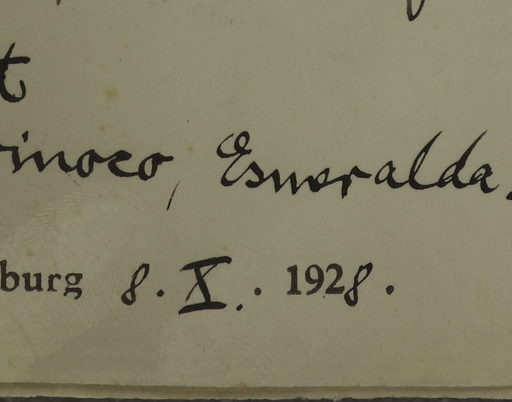 t
rinoco, Esmeralda.
burg 8. X. . 1928.